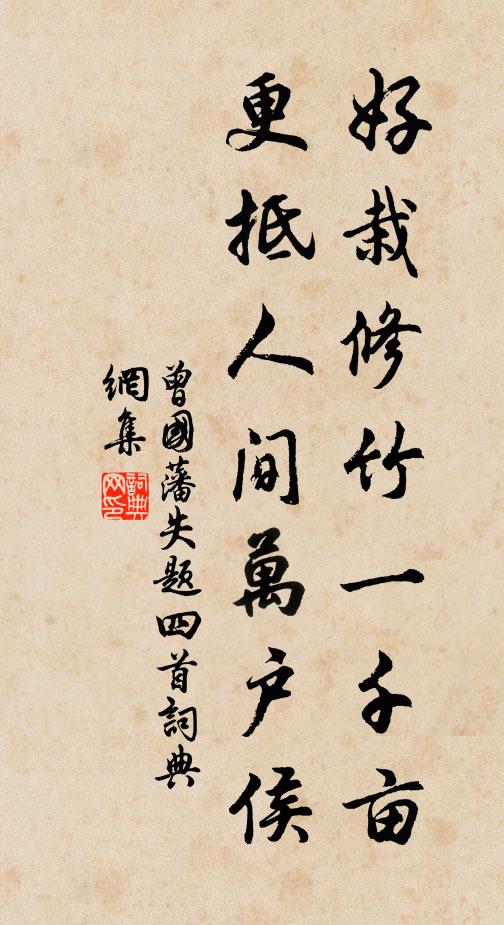 好栽修竹一千亩
更抵人间萬户侯
曾國藩失题四首詞典
網集
詞典
网印